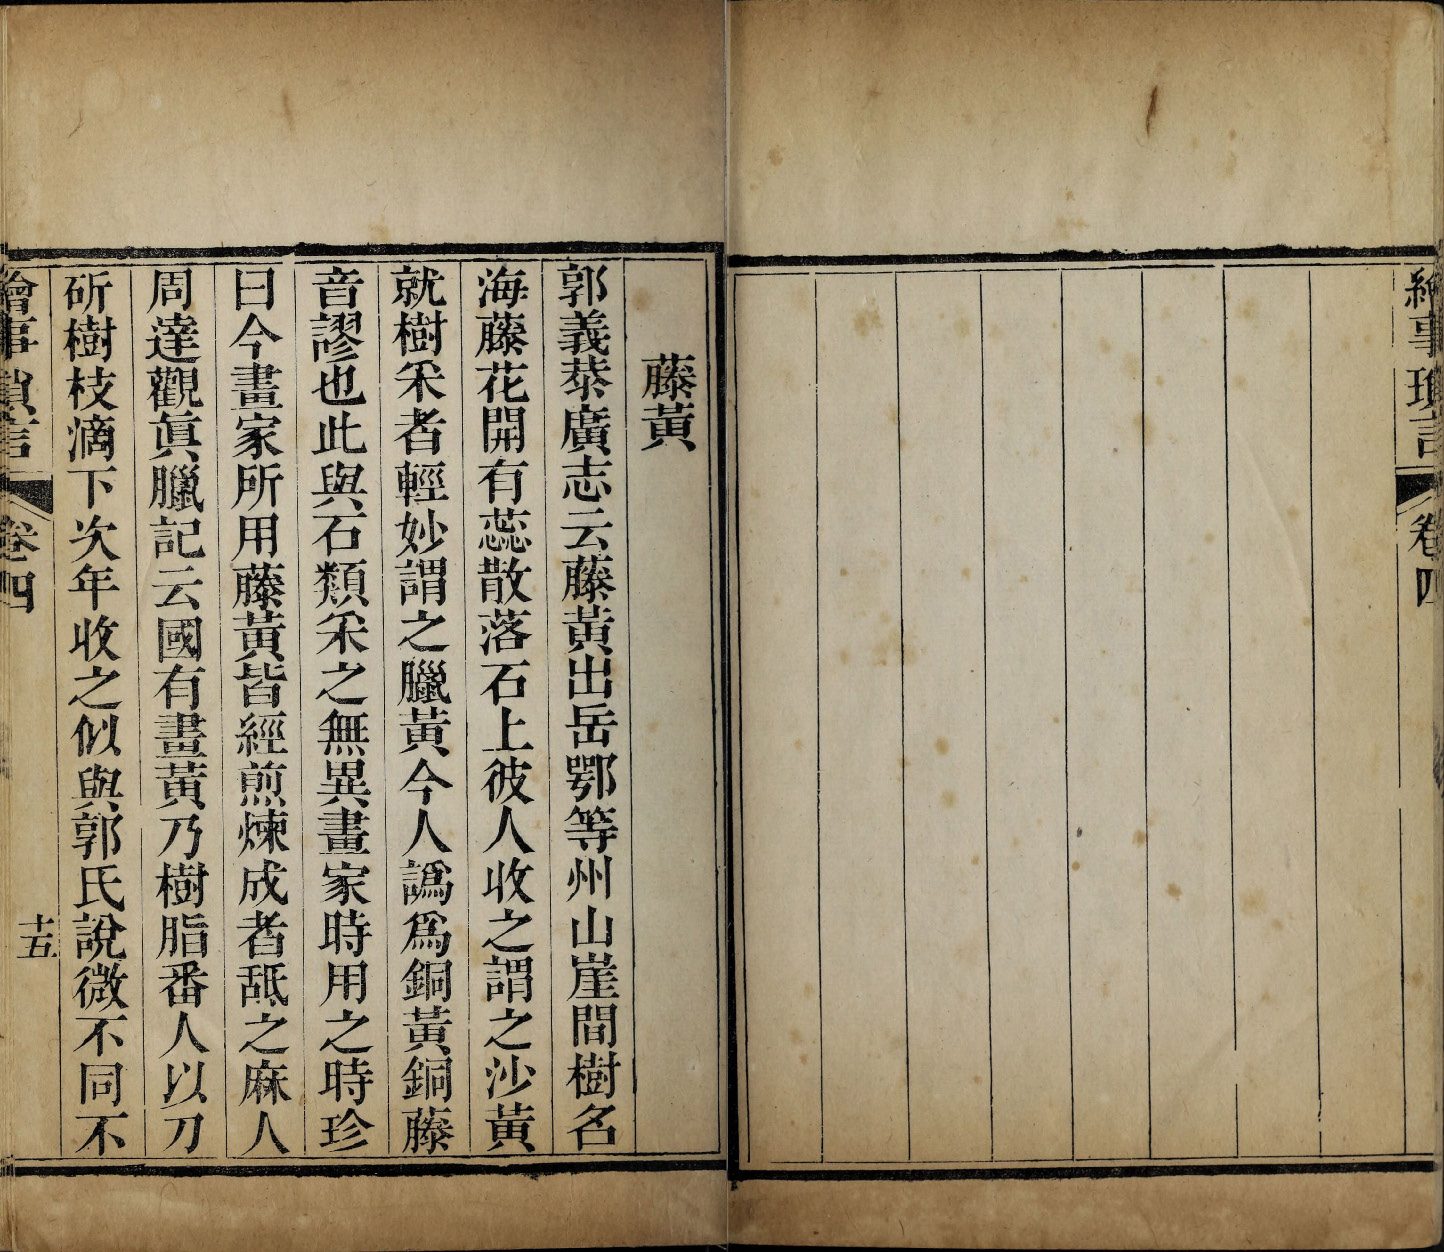 繪事瑣言
卷四
藤黃
郭義恭廣志云藤黃出岳鄂等州山崖間樹名
海藤花開有蕊散落石上彼人收之謂之沙黃
就樹采者輕妙謂之臘黃今人譌爲銅黃銅藤
音謬也此與石類采之無異畫家時用之時珍
曰今畫家所用藤黃皆經煎煉成者舐之麻人
周達觀眞臘記云國有畫黃乃樹脂番人以刀
斫樹枝滴下次年收之似與郭氏說微不同不
繪事瑣言
卷四
十五